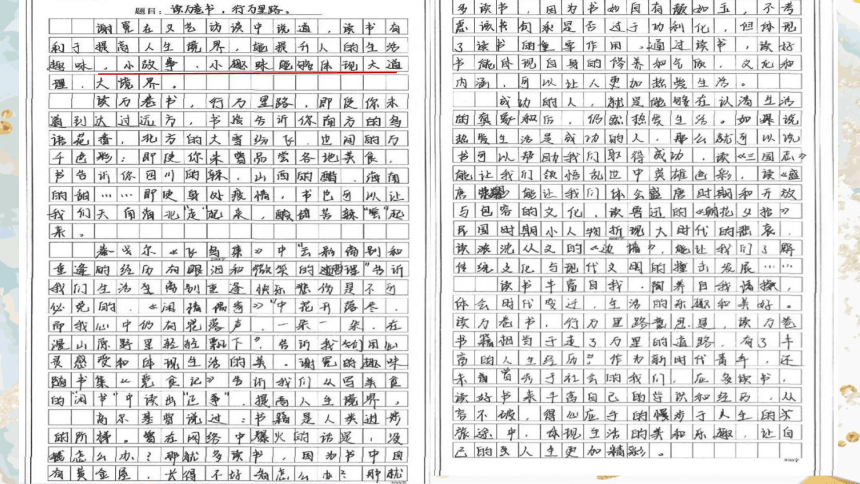 题目：读万卷书，行万里路。
谢冕在文艺访谈中说道，读书有
利于提高人生境界，能提升人的生活
趣味，小故事、小趣味能够体现大道
理、大境界。
读万卷书，行万里路，即使你未
到达过远方，书会告诉你南方的鸟
语花香，北方的大雪纷飞，世间的万
千色彩；即使你未曾品尝各地美食，
书告诉你四川的辣，山西的醋，海南
的甜……即使身处疫情，书也可以让
我们天南海北“走”起来，酸甜苦辣“尝”起
来。
泰戈尔《飞鸟集》中“云影离别和
重逢的经历向眼泪和微笑的”告诉
我们生活生离别重逢快乐悲伤是不可
必免的，《闲情偶寄》“中花开落尽，
而我心中仍有花落声，一朵一朵，在
漫山原野里轻轻飘下”告诉我们用心
灵感受和体现生活的美。谢冕的趣味
随书集《觅食记》告诉我们从写美食
的“闲书”中读出“正事”，提高人生境界。
高尔基曾说过：书籍是人类进步
的阶梯。曾在网络中爆火的话是，没
钱怎么办？那就多读书，因为书中自
有黄金屋，长得不好看怎么办？那就
多读书，因为书如自有颜如玉，不考
虑该书句来是否过于功利化，但体现
了读书的重要作用。通过读书，读好
书能体现自身的修养和气质，文化和
内涵，可以让人更加热爱生活。
成功的人，就是能够在认清生活
的 和后，仍然热爱生活。如果说
热爱生活是成功的人，那么就可以说
书可以帮助我们取得成功，读《三国志》
能让我们快悟乱世中英雄色彩，读《盛
唐 》能让我们体会盛唐时期和开放
与包容的文化，读鲁迅的《朝花夕拾》
民国时期小人物折现大时代的悲哀，
读沈从文的《边城》，能让我们了解
传统文化与现代文明的撞击发展……
读书丰富自我，陶养自我情操，
体会时代变迁，生活的乐趣和美好。
读万卷书，行万里路意思是，读万卷
书籍相当于走了万里的道路，有了丰
富的人生经历。”作为新时代青年，还
未曾 于社会的我们，应多读书，
读好书来丰富自己的学识和经历，从
容不破，得心应手的慢步于人生的
旅途中，体现生活的美和乐趣，让自
己的人生更加精彩。